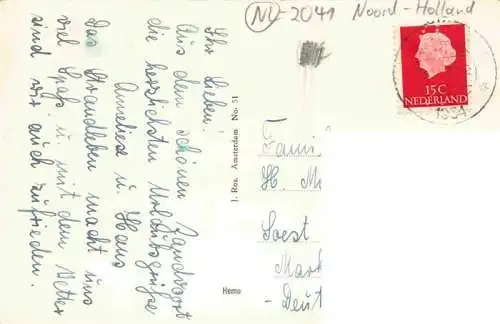 NL-2041 Noord-Holland
Ihr Lieben!
Aus dem schönen Zandvoort
die herzlichsten Urlaubsgrüße
Anneliese u. Hans
Das Strandleben macht uns
viel Spaß u. mit dem Wetter
sind wir auch zufrieden.
J. Roa, Amsterdam No. 51
Hemo
15 C
NEDERLAND
Fami
H. M
Soest
Mark
- Deut